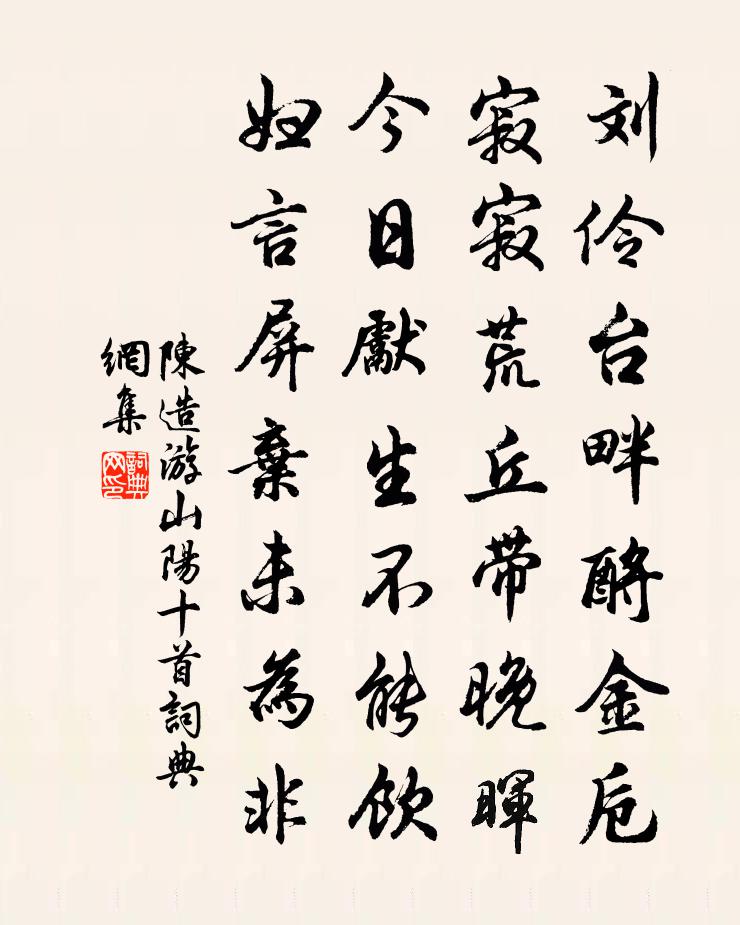 刘伶台畔酹金卮
寂寂荒丘带晚暉
今日獻生不能飲
妇言屏棄未為非
陳造游山陽十首詞典
網集
詞典
网印